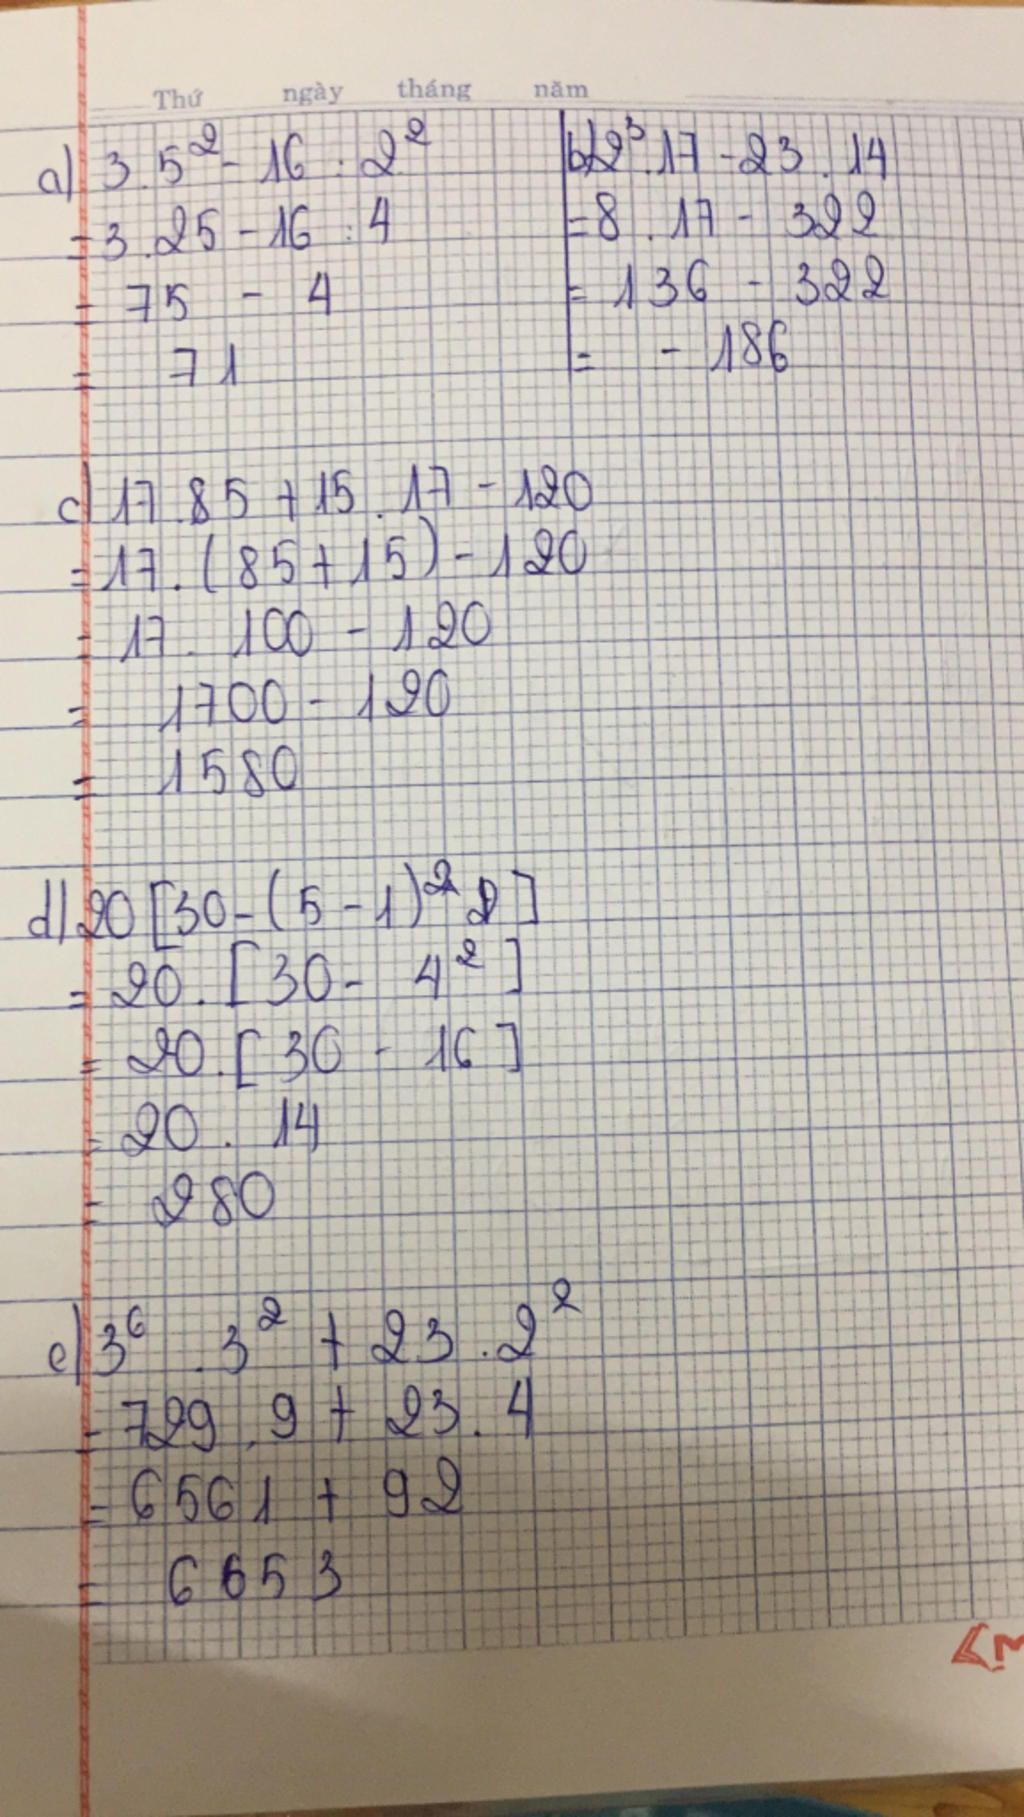 Thứ ngày tháng năm
a) 3.5² - 16 : 2²
= 3.25 - 16 : 4
= 75 - 4
= 71
b) 2³.17 - 23.14
= 8.17 - 322
= 136 - 322
= - 186
c) 17.85 + 15.17 - 120
= 17.(85+15) - 120
= 17.100 - 120
= 1700 - 120
= 1580
d) 20[30-(5-1)² ]
= 20.[30- 4²]
= 20.[30 - 16]
= 20.14
= 280
e) 3⁶.3² + 23.2²
= 729.9 + 23.4
= 6561 + 92
= 6653